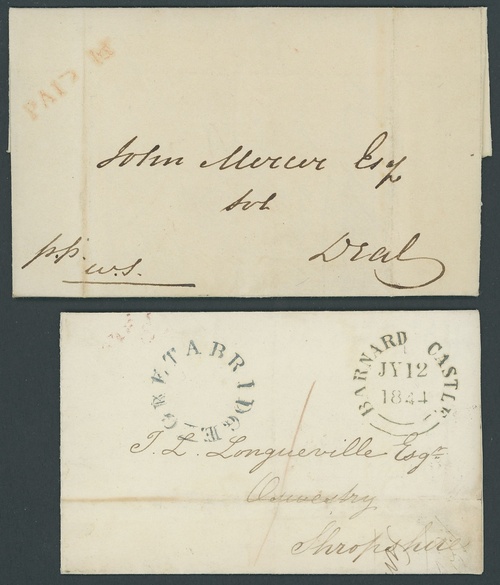 PAID
John Mercer Esq
Sol
Deal
p.p. w.s.
GRETABRIDGE
BARNARD CASTLE
JY 12
1844
T. L. Longueville Esqr
Oswestry
Shropshire